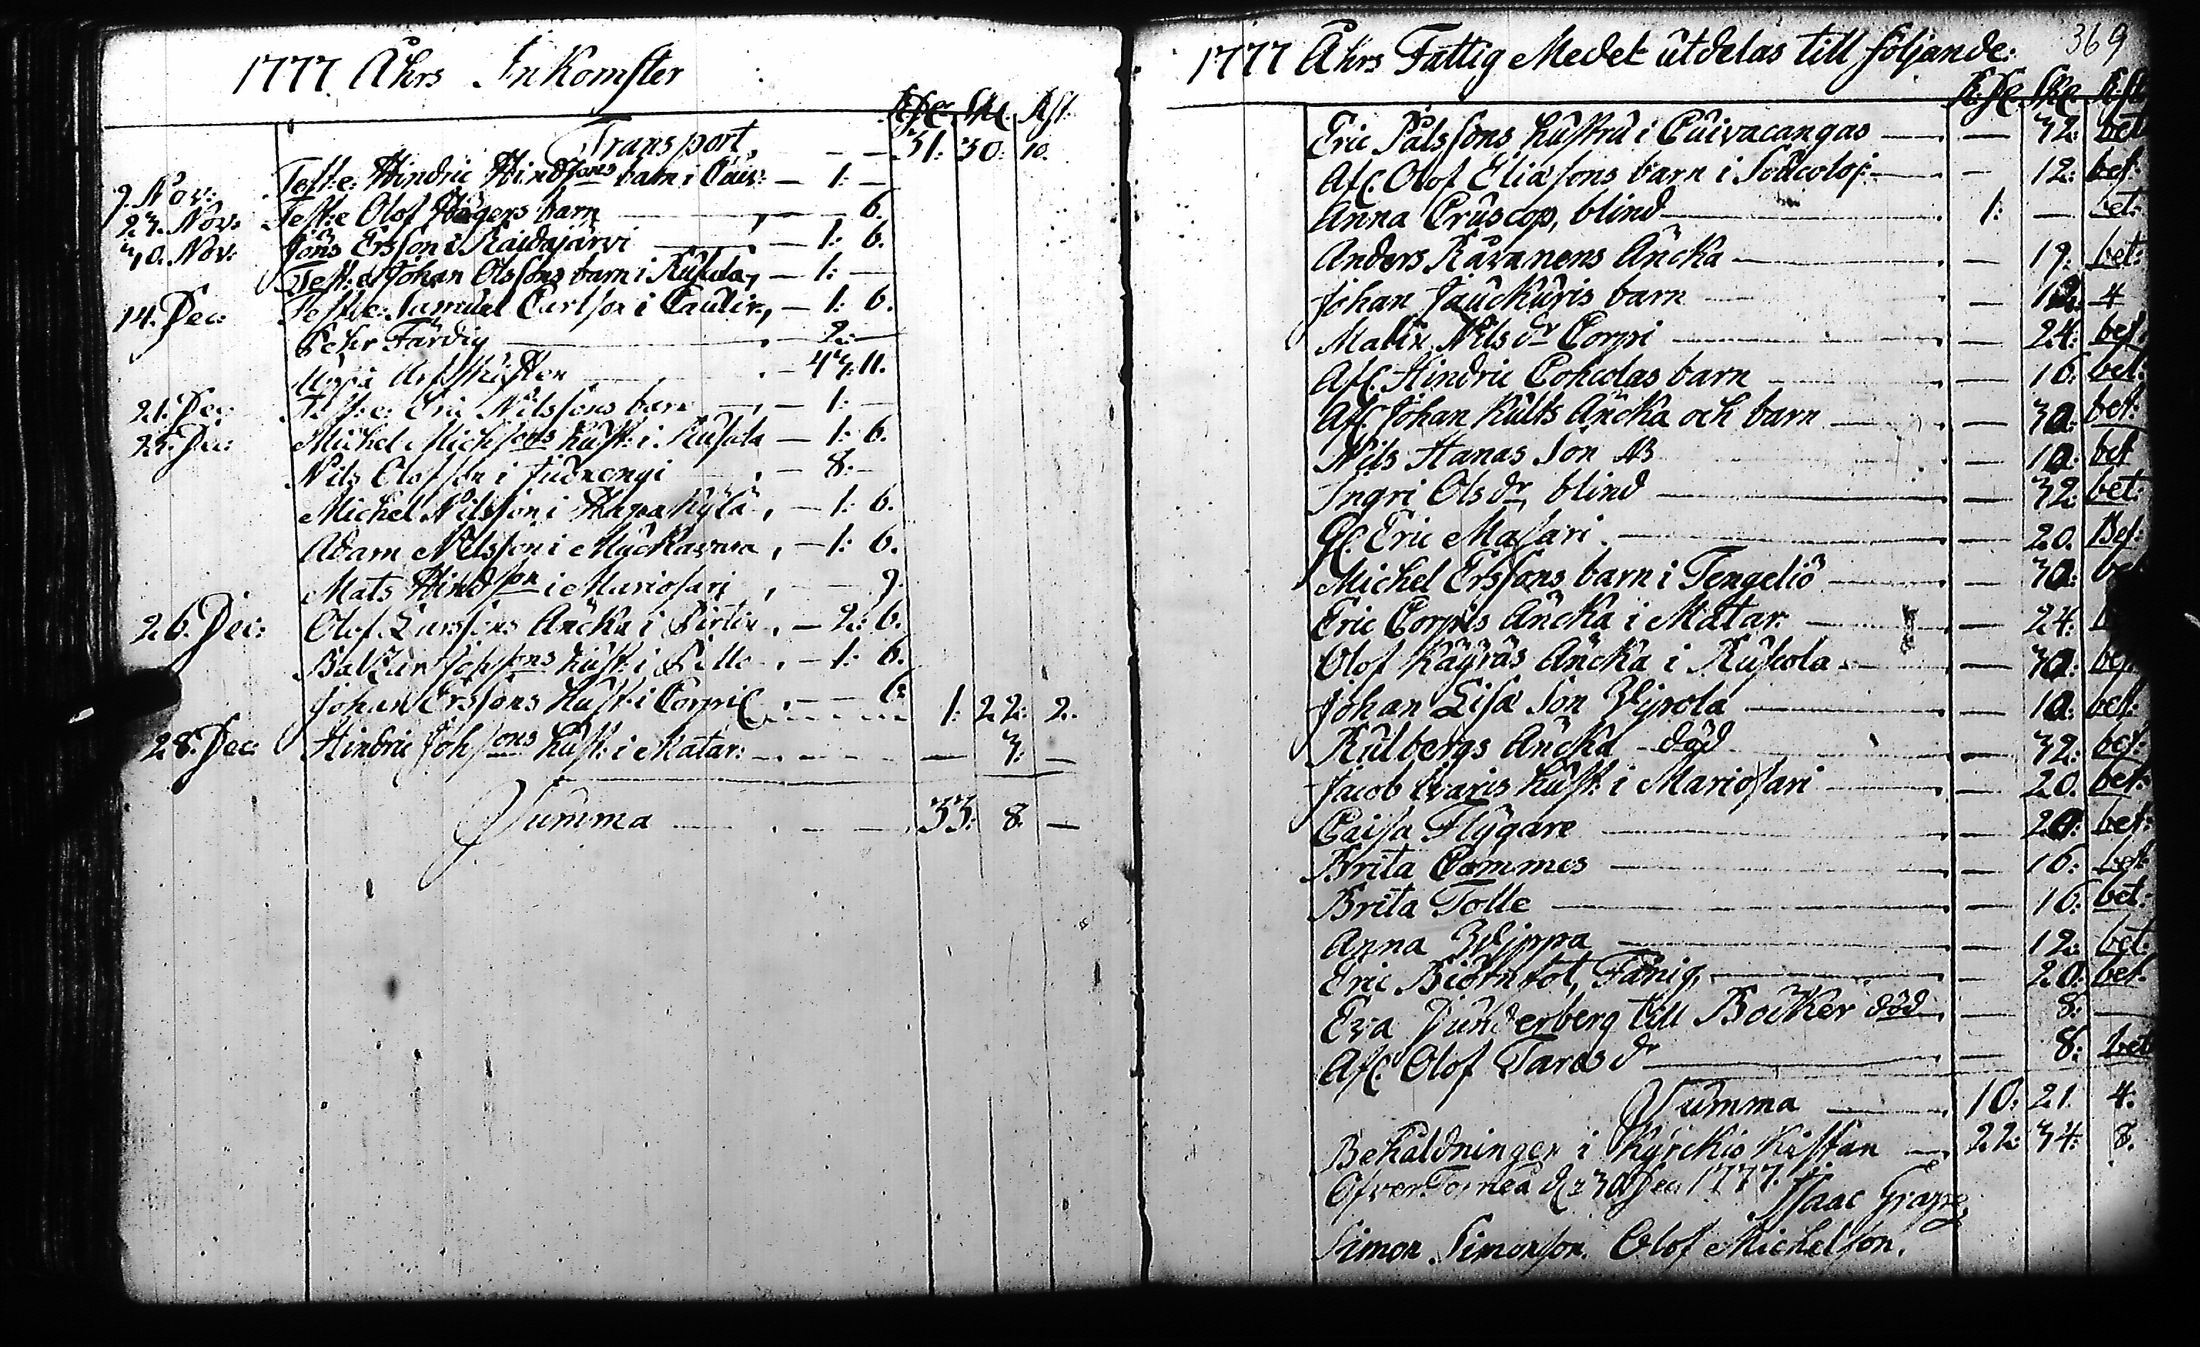 1777 Åhrs Inkomster
R:dr. Sk. Rst.
Transport, — — 31: 30: 10.
9. Nov: Test:e Hindric Hindsons barn i Cuiv: — 1: —
23. Nov: Test:e Olof Hägers barn — 6.
30. Nov: Jöns Ersson i Raidajärvi — 1: 6.
Test:e Johan Olssons barn i Ruskola, — 1: —
14. Dec: Test:e Samuel Carlson i Caulir., — 1: 6.
Pehr Färdig — 2: —
43: 11.
21. Dec: Test:e: Eric Nilssons barn — 1: —
25. Dec: Michel Michsons hust: i Ruskola — 1: 6.
Nils Olofson i Juoxengi — 8: —
Michel Nilsson i Kylä, — 1: 6.
Adam Nilsson i Myckavara, — 1: 6.
Mats Hindson i Mariosari, — 9.
26. Dec: Olof Larssons Äncka i Pirtin. — 2: 6.
Baltzar Johsons hust: i Pello. — 1: 6.
Johan Erssons hust: i Corpic — 6. 1: 22: 2.
28. Dec: Hindric Johsons hust: i Matar: — — 3: —
Summa — 33: 8. —
1777 Åhrs Fattig Medel utdelas till följande: 369
R:dr. Sk. Rst.
Eric Pålssons hustru i Cuivacangas — — 32. bet
Afl. Olof Eliasons barn i — 12: bet:
Anna Cruscop, blind — 1: — bet:
Anders Kavanens Äncka — — 19: bet:
Johan Jauckuris barn — 4
Malin Nilsdr Corpi — — 24: bet:
Afl. Hindric Cohcolas barn — 16: bet:
Afl. Johan Hults Äncka och barn — — 30: bet:
Nils Hanas Son — 10: bet
Ingri Olsdr, blind — — 32: bet:
Gl. Eric Masari — — 20. Bet:
Michel Erssons barn i Tengeliö — — 30:
Eric Corpis Äncka i Matar: — — 24:
Olof Käyräs Äncka i Ruskola — — 30: bet
Johan Lisa Son — 10: bet:
Kulbergs Äncka död — — 32: bet:
Jacob Ivaris hust: i Mariosari — — 20. bet:
Caisa Flygare — — 20: bet:
Brita Commes — — 16: bet:
Brita Tolle — — 16: bet:
Anna — — 12: bet:
Eric Biörnfot, Fånig, — — 20: bet:
Eva Dunderberg till Böcker död — — 8: —
Afl. Olof Taras dr — — 8: bet
Summa — 10: 21. 4.
Behåldningen i Kyrckio Kistan — 22: 34: 8.
Öfver Torneå d. 30 Dec: 1777. Isaac Grape,
Simon Simonson. Olof Michelson.